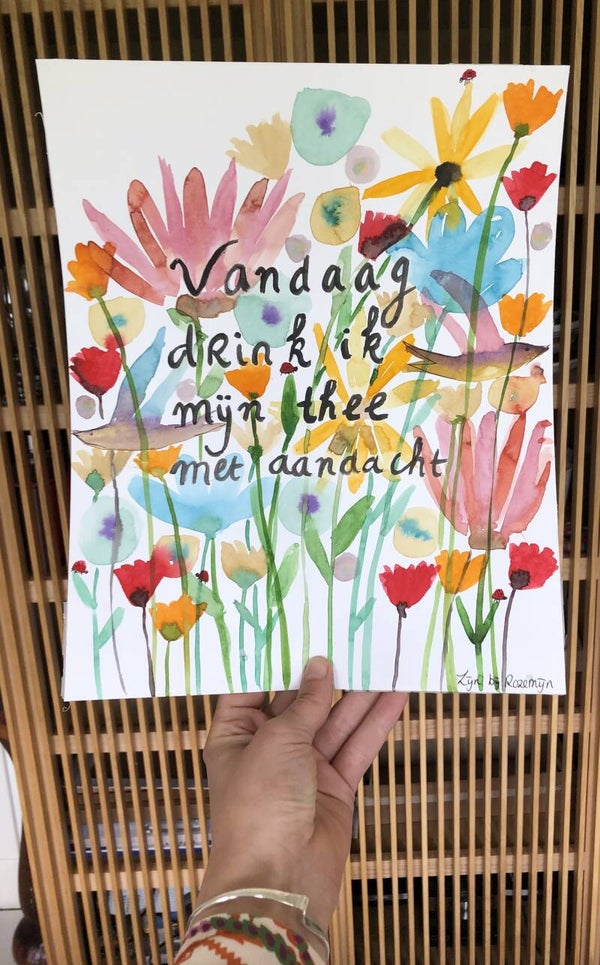 Vandaag
drink ik
mijn thee
met aandacht
Zijn bij Rozemijn